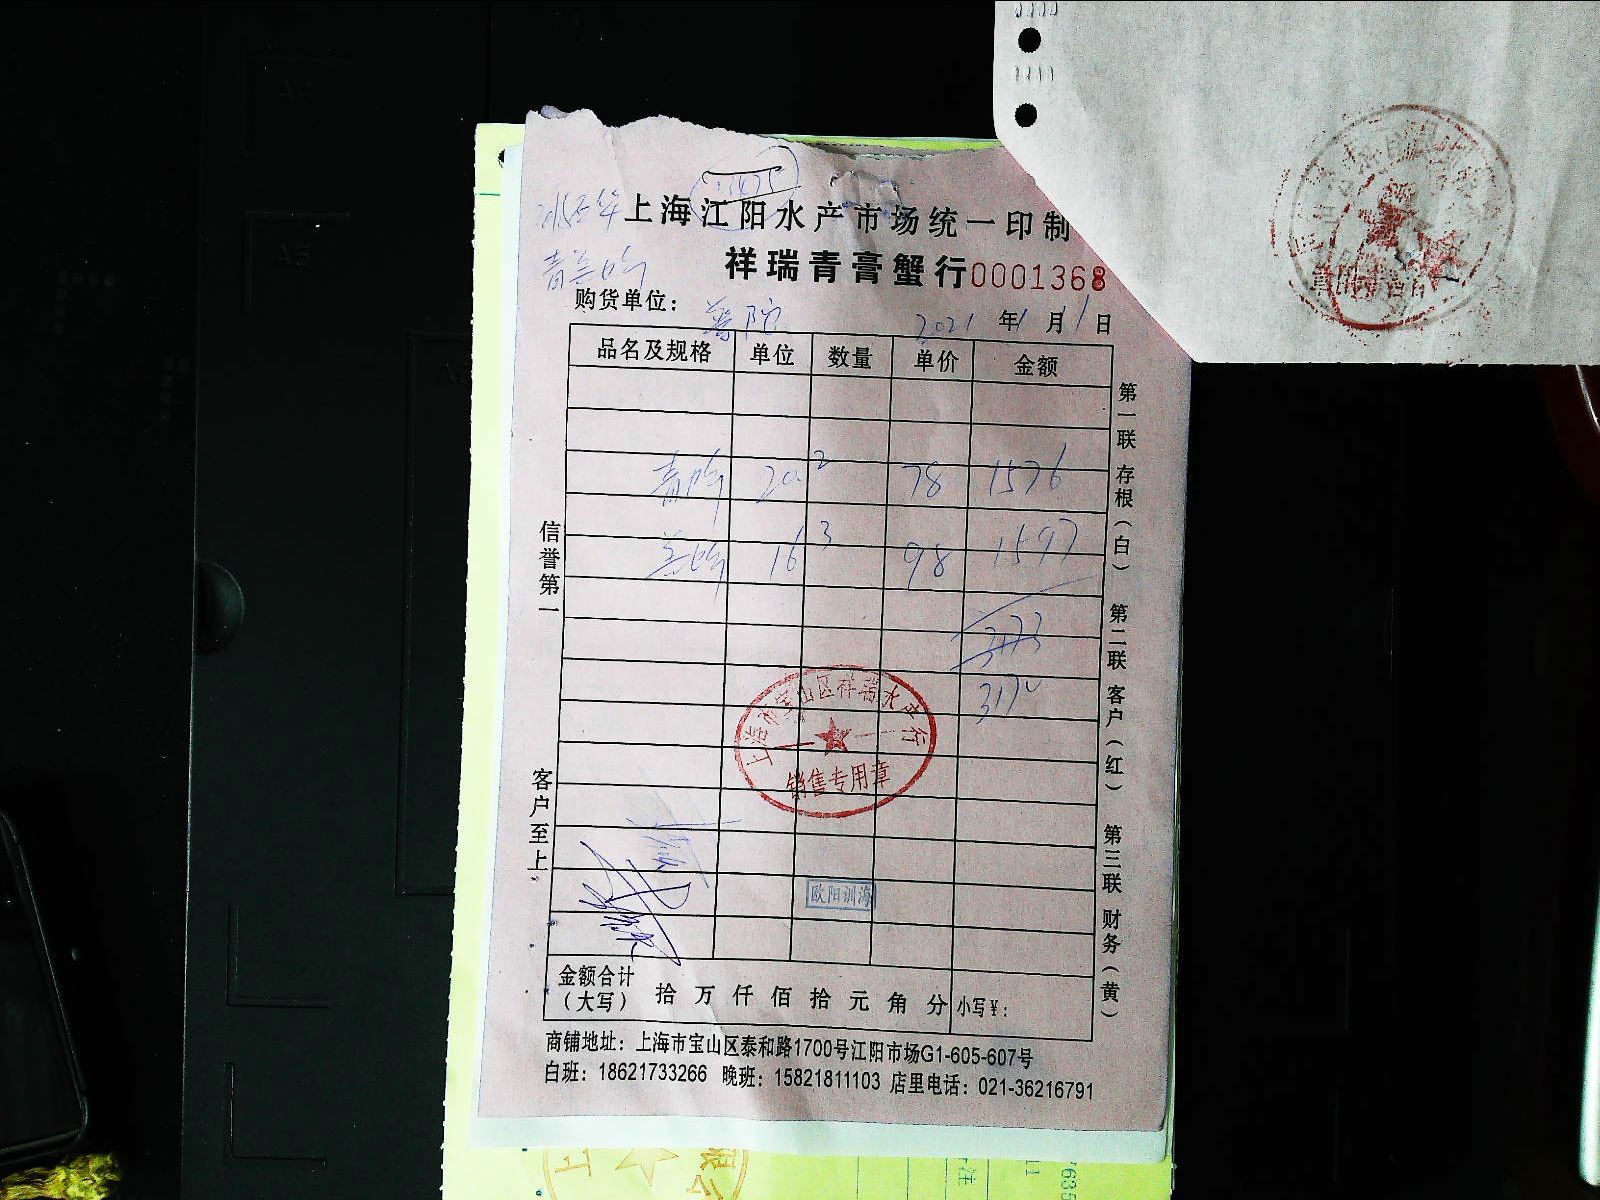 上海江阳水产市场统一印制
祥瑞青膏蟹行 0001368
购货单位： 普陀 2021 年 1 月 11 日
品名及规格 单位 数量 单价 金额
青蛤 20.2 78 1576
16.3 98 1597
3173
3170
上海市宝山区祥瑞水产行
销售专用章
欧阳训海
金额合计
（大写） 拾 万 仟 佰 拾 元 角 分 小写￥：
商铺地址：上海市宝山区泰和路1700号江阳市场G1-605-607号
白班：18621733266 晚班：15821811103 店里电话：021-36216791
信誉第一
客户至上
第一联 存根（白）
第二联 客户（红）
第三联 财务（黄）